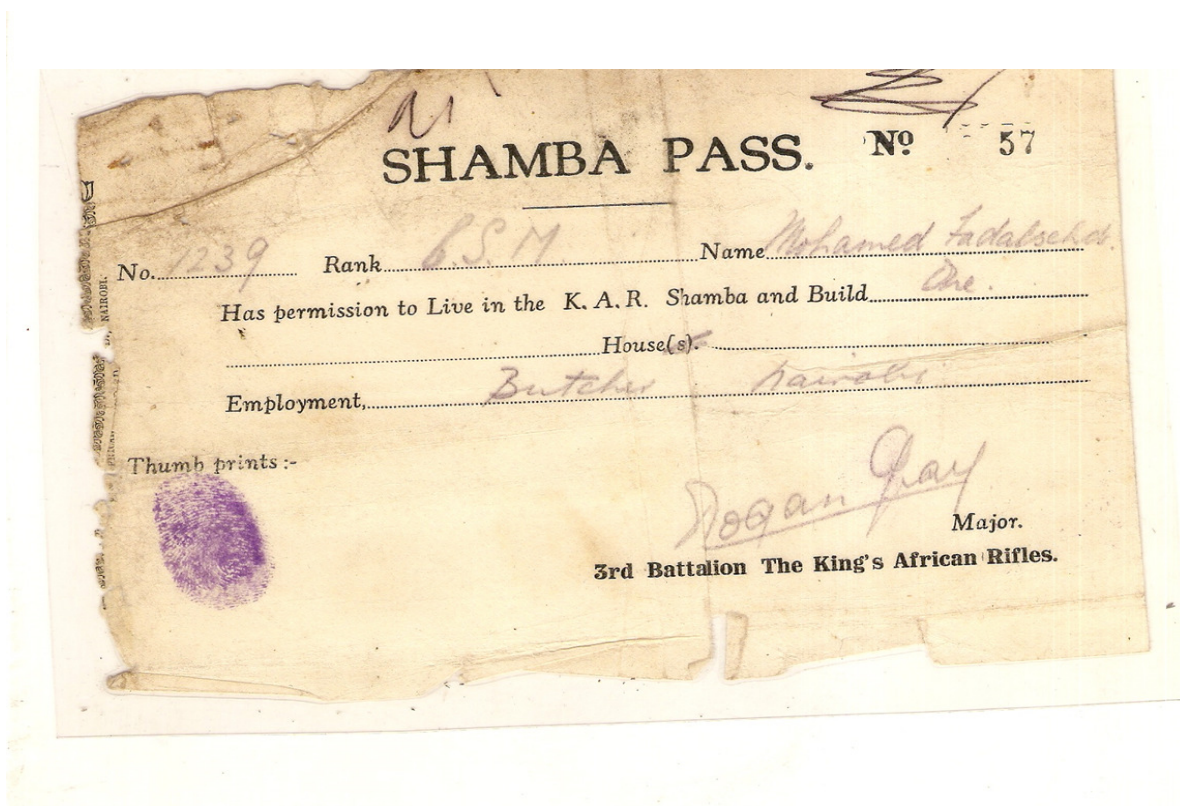 SHAMBA PASS. Nº 57
No. 1239 Rank C.S.M Name Mohamed
Has permission to Live in the K. A. R. Shamba and Build One.
House(s).
Employment, Butcher Nairobi
Thumb prints :-
Gray
Major.
3rd Battalion The King's African Rifles.
NAIROBI.